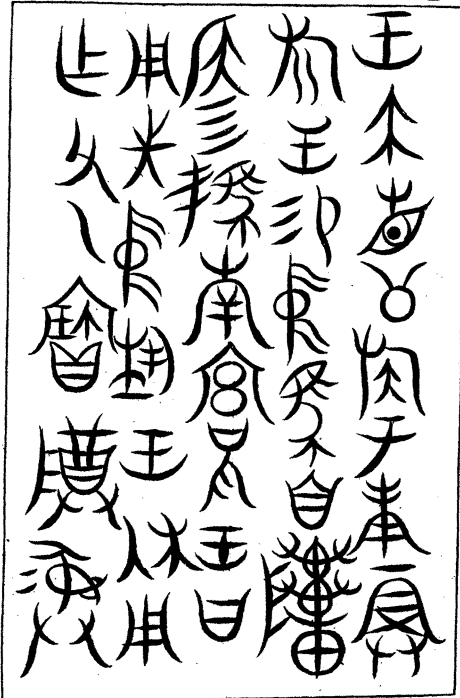 王大省公族于庚振
旅王易中馬自𨻰
侯四䮂南宮兄王曰
用先中埶王休用
乍父乙寶尊彝